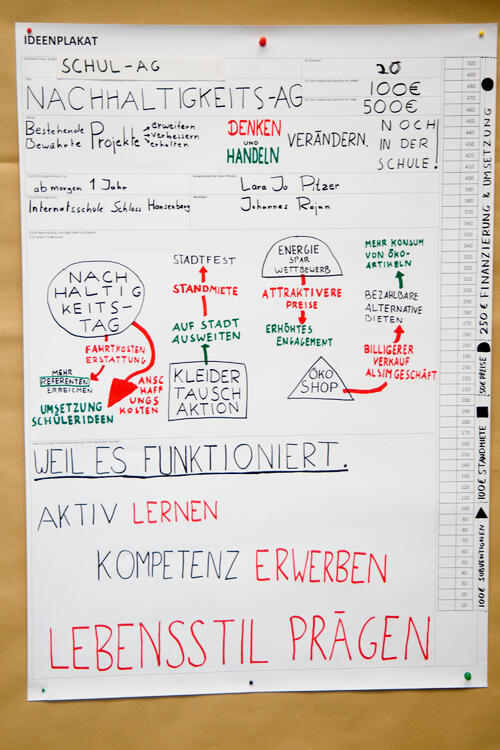 IDEENPLAKAT
SCHUL-AG
20
NACHHALTIGKEITS-AG
100€
500€
Bestehende
Bewährte
Projekte
erweitern
verbessern
erhalten
DENKEN
UND
HANDELN
VERÄNDERN.
NOCH
IN DER
SCHULE!
ab morgen 1 Jahr
Lara Jo Pitzer
Internatsschule Schloss Hansenberg
Johannes Rajan
NACH
HALTIG
KEITS-
TAG
FAHRTKOSTEN
ERSTATTUNG
MEHR
REFERENTEN
ERREICHEN
ANSC
HAFF
UNGS
KOSTEN
UMSETZUNG
SCHÜLERIDEEN
STADTFEST
STANDMIETE
AUF STADT
AUSWEITEN
KLEIDER
TAUSCH
AKTION
ENERGIE
SPAR
WETTBEWERB
ATTRAKTIVERE
PREISE
ERHÖHTES
ENGAGEMENT
ÖKO
SHOP
MEHR KONSUM
VON ÖKO-
ARTIKELN
BEZAHLBARE
ALTERNATIVE
BIETEN
BILLIGERER
VERKAUF
ALS IM GESCHÄFT
WEIL ES FUNKTIONIERT.
AKTIV LERNEN
KOMPETENZ ERWERBEN
LEBENSSTIL PRÄGEN
250€ FINANZIERUNG & UMSETZUNG
50€ PREISE
100€ STANDMIETE
100€ SUBVENTIONEN